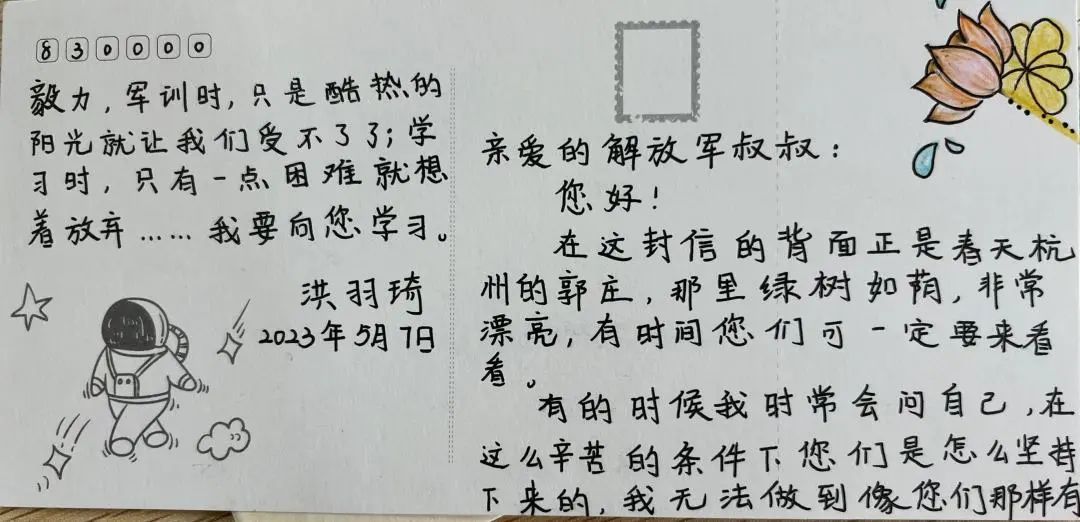 830000
亲爱的解放军叔叔：
您好！
在这封信的背面正是春天杭
州的郭庄，那里绿树如荫，非常
漂亮，有时间您们可一定要来看
看。
有的时候我时常会问自己，在
这么辛苦的条件下您们是怎么坚持
下来的，我无法做到像您们那样有
毅力，军训时，只是酷热的
阳光就让我们受不了了；学
习时，只有一点困难就想
着放弃……我要向您学习。
洪羽琦
2023年5月7日